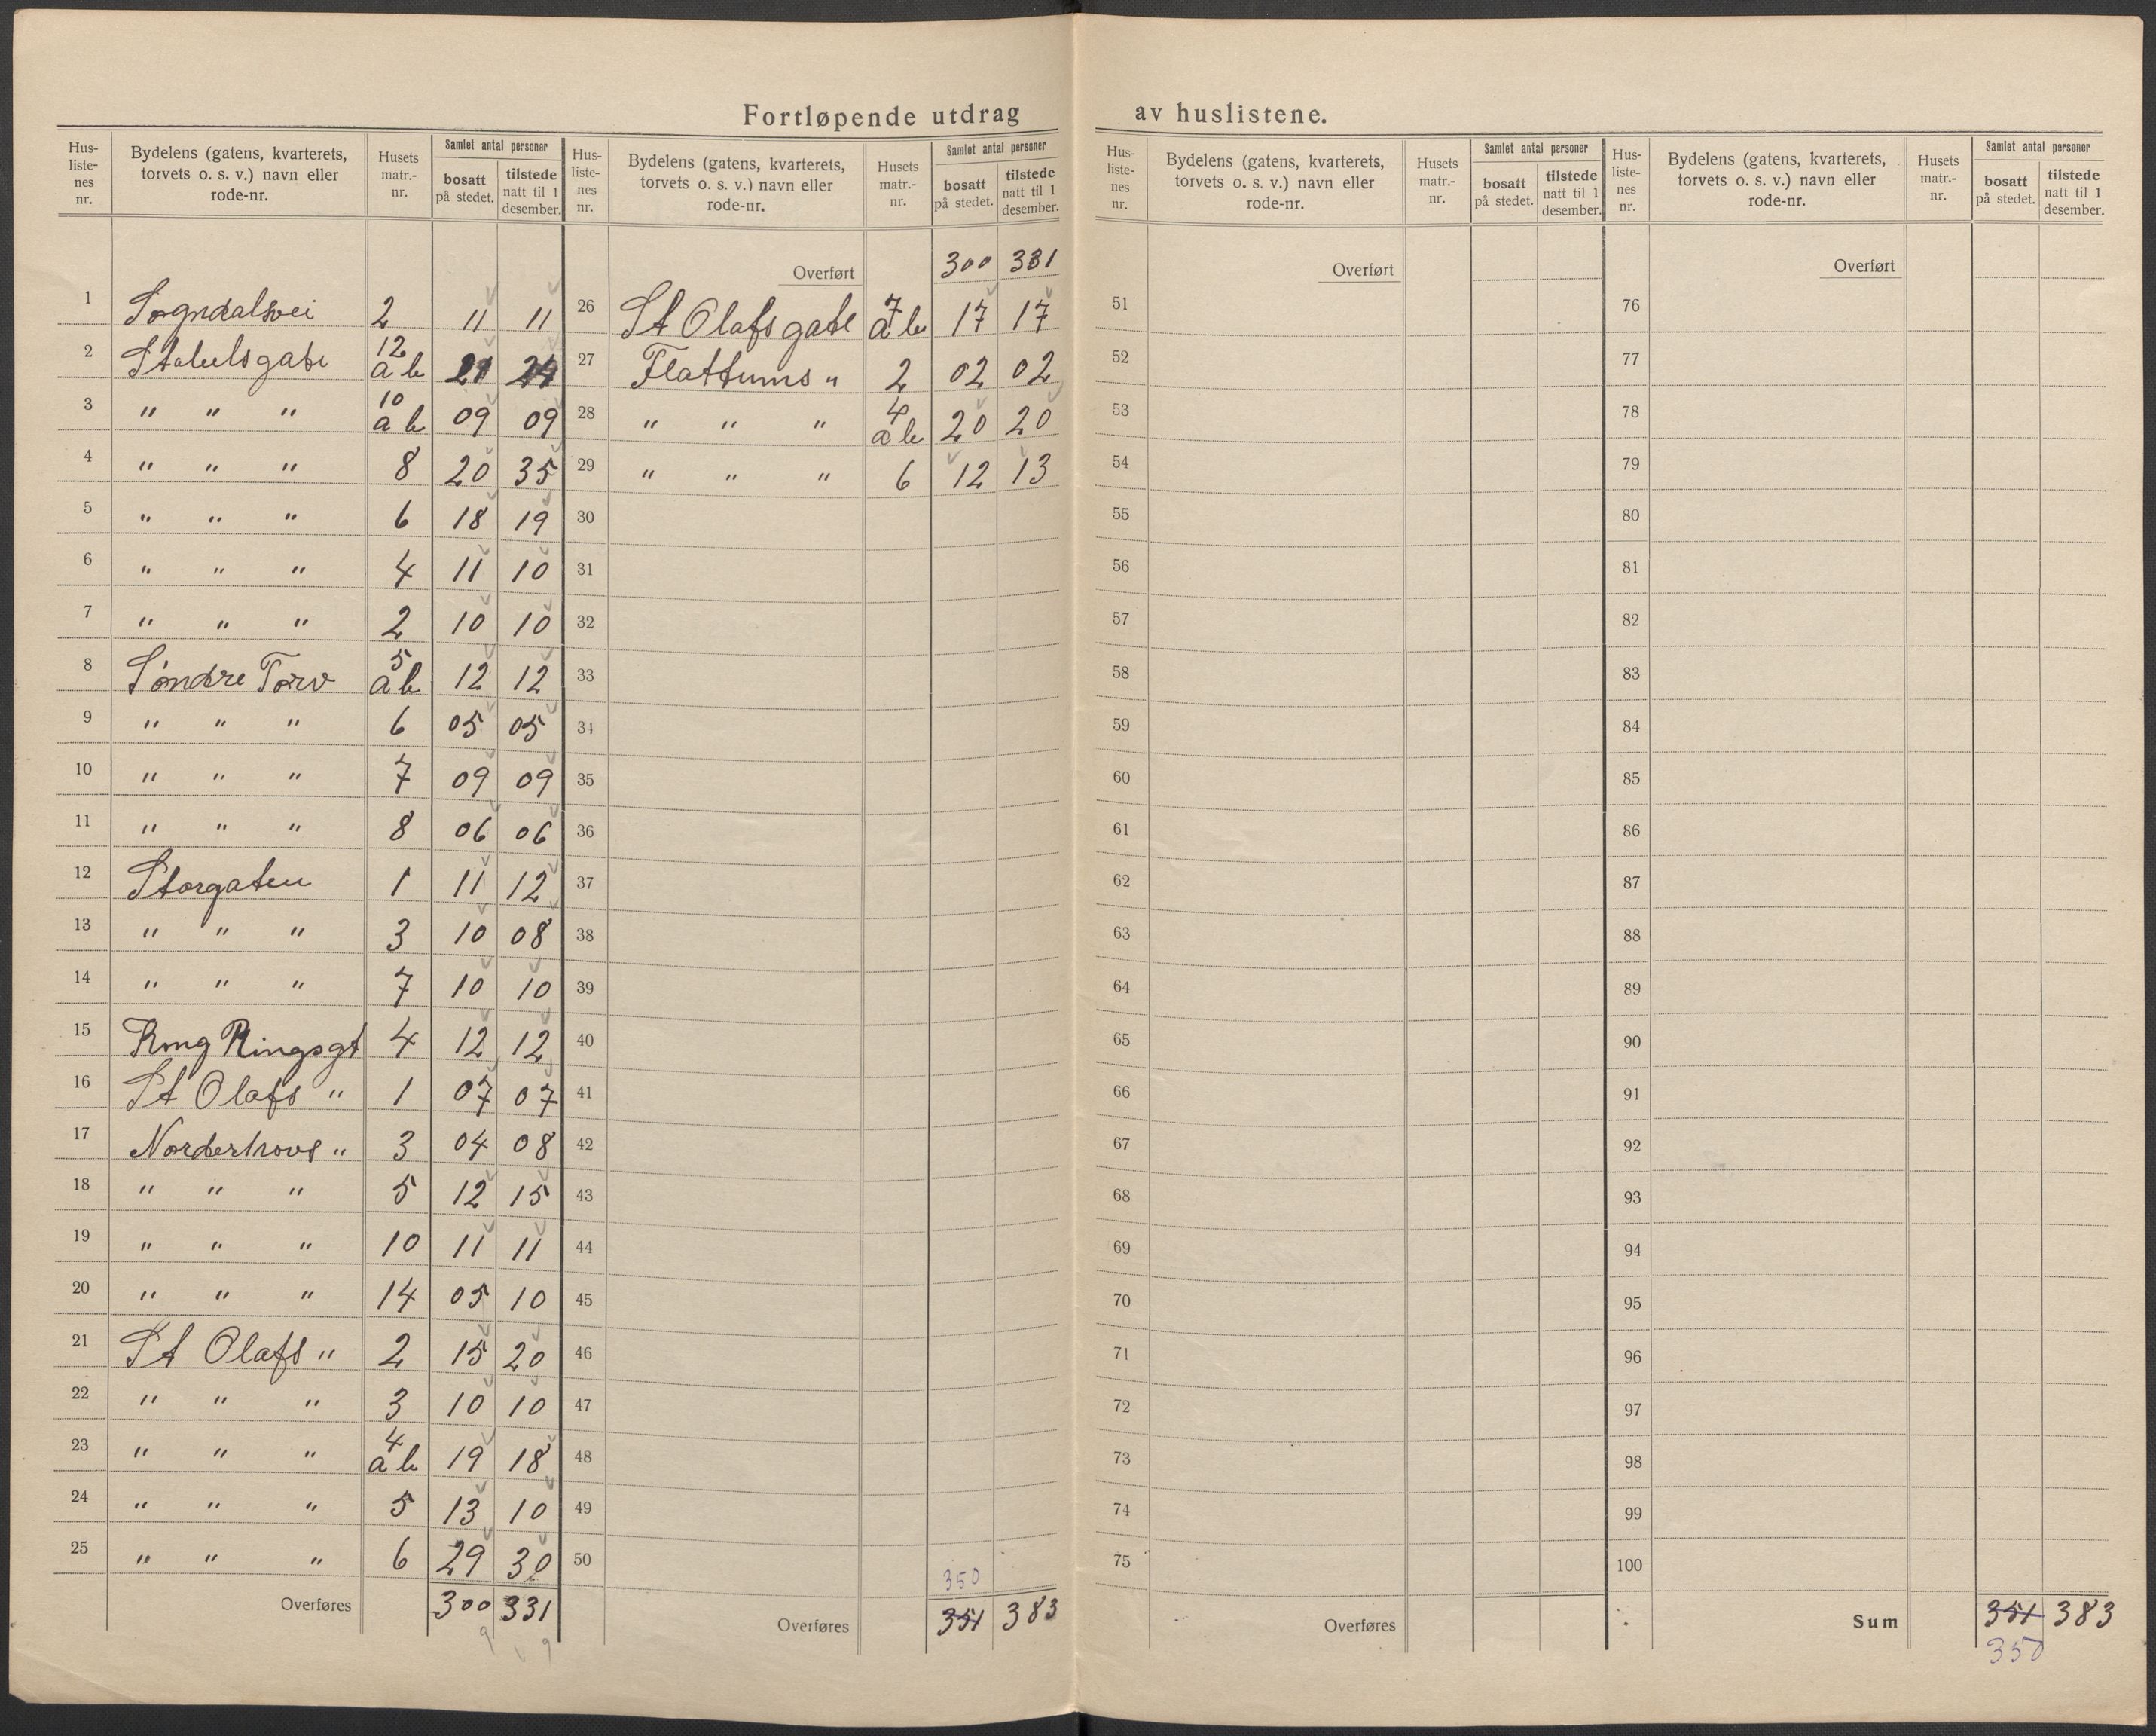 Fortløpende utdrag av huslistene.
Hus-listenes nr. | Bydelens (gatens, kvarterets, torvets o. s. v.) navn eller rode-nr. | Husets matr.-nr. | Samlet antal personer bosatt på stedet. | tilstede natt til 1 desember.
1 Sogndalsvei 2 11 11
2 Stabelsgate 12 a b 21 24
3 " " " 10 a b 09 09
4 " " " 8 20 35
5 " " " 6 18 19
6 " " " 4 11 10
7 " " " 2 10 10
8 Søndre Torv 5 a b 12 12
9 " " " 6 05 05
10 " " " 7 09 09
11 " " " 8 06 06
12 Storgaten 1 11 12
13 " " " 3 10 08
14 " " " 7 10 10
15 Kong Ringsgt 4 12 12
16 St Olafs " 1 07 07
17 Norderhovs " 3 04 08
18 " " " 5 12 15
19 " " " 10 11 11
20 " " " 14 05 10
21 St Olafs " 2 15 20
22 " " " 3 10 10
23 " " " 4 a b 19 18
24 " " " 5 13 10
25 " " " 6 29 30
Overføres 300 331
9 9
Hus-listenes nr. | Bydelens (gatens, kvarterets, torvets o. s. v.) navn eller rode-nr. | Husets matr.-nr. | Samlet antal personer bosatt på stedet. | tilstede natt til 1 desember.
Overført 300 331
26 St Olafs gate 7 a b 17 17
27 Flattums " 2 02 02
28 " " " 4 a b 20 20
29 " " " 6 12 13
30
31
32
33
34
35
36
37
38
39
40
41
42
43
44
45
46
47
48
49
50
350
Overføres 351 383
Hus-listenes nr. | Bydelens (gatens, kvarterets, torvets o. s. v.) navn eller rode-nr. | Husets matr.-nr. | Samlet antal personer bosatt på stedet. | tilstede natt til 1 desember.
Overført
51
52
53
54
55
56
57
58
59
60
61
62
63
64
65
66
67
68
69
70
71
72
73
74
75
Overføres
Hus-listenes nr. | Bydelens (gatens, kvarterets, torvets o. s. v.) navn eller rode-nr. | Husets matr.-nr. | Samlet antal personer bosatt på stedet. | tilstede natt til 1 desember.
Overført
76
77
78
79
80
81
82
83
84
85
86
87
88
89
90
91
92
93
94
95
96
97
98
99
100
Sum 351 383
350